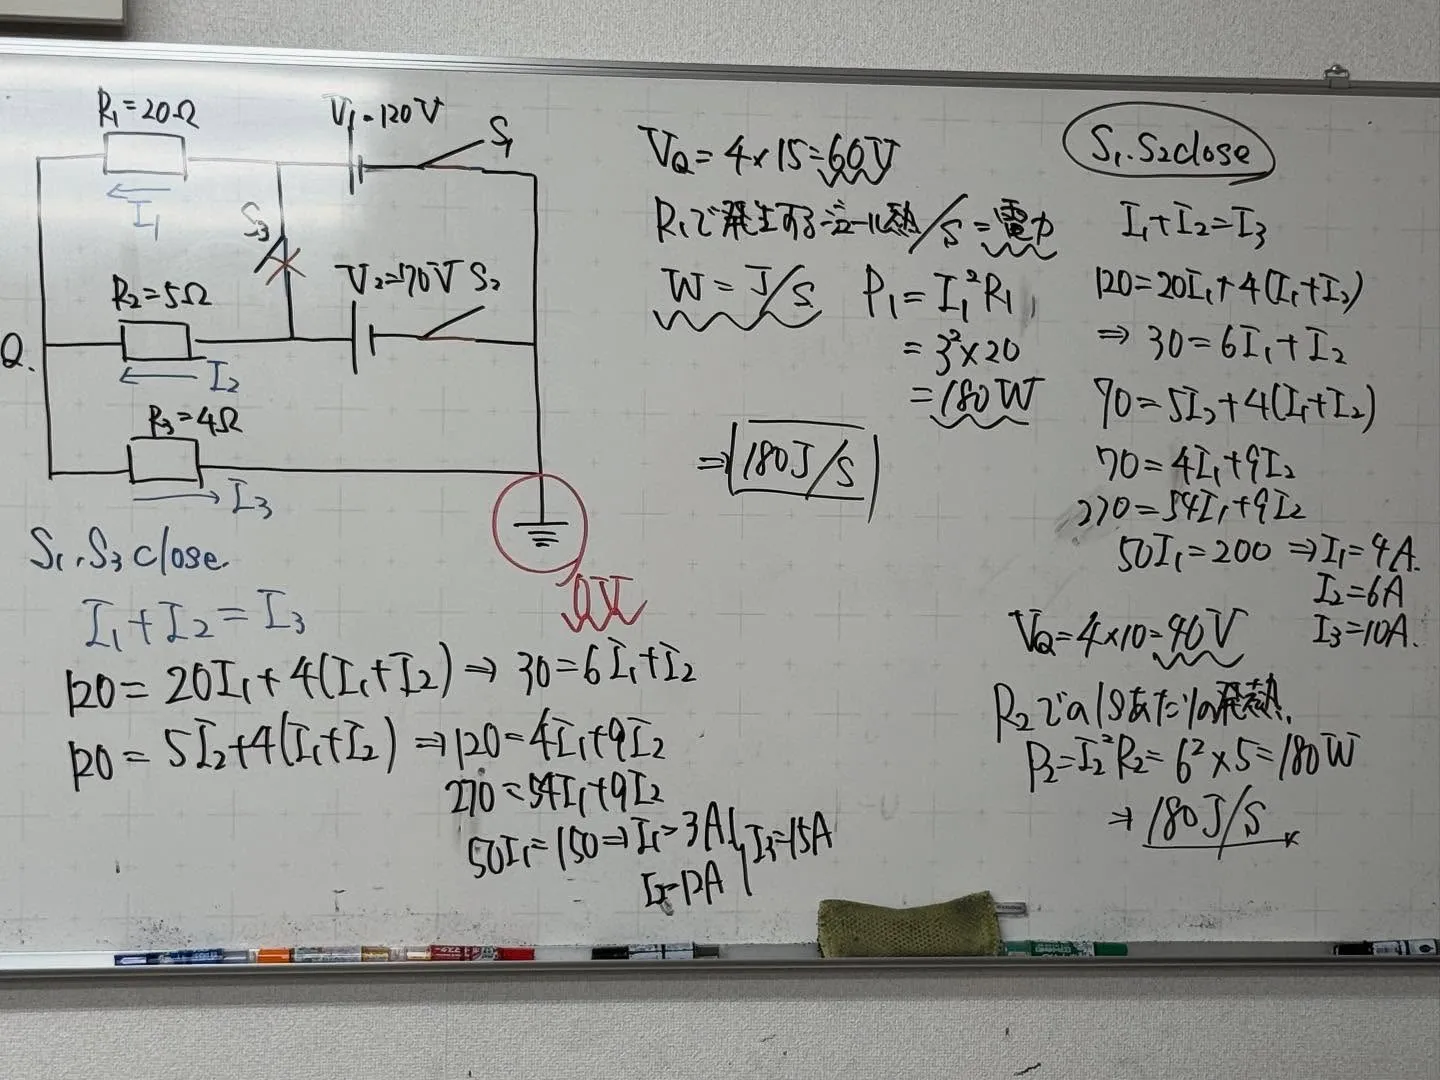 R₁=20Ω
V₁=120V
S₁
I₁
S₃
R₂=5Ω
V₂=70V S₂
Q.
I₂
R₃=4Ω
I₃
0V
S₁, S₃ close.
I₁+I₂=I₃
120=20I₁+4(I₁+I₂)⇒30=6I₁+I₂
120=5I₂+4(I₁+I₂)⇒120=4I₁+9I₂
270=54I₁+9I₂
50I₁=150⇒I₁=3A
I₂=12A
I₃=15A
V_Q=4×15=60V
R₁で発生するジュール熱/S=電力
W=J/S
P₁=I₁²R₁
=3²×20
=180W
⇒180J/S
S₁.S₂close
I₁+I₂=I₃
120=20I₁+4(I₁+I₂)
⇒30=6I₁+I₂
70=5I₂+4(I₁+I₂)
70=4I₁+9I₂
270=54I₁+9I₂
50I₁=200⇒I₁=4A.
I₂=6A
I₃=10A.
V_Q=4×10=40V
R₂での1Sあたりの発熱.
P₂=I₂²R₂=6²×5=180W
⇒180J/S